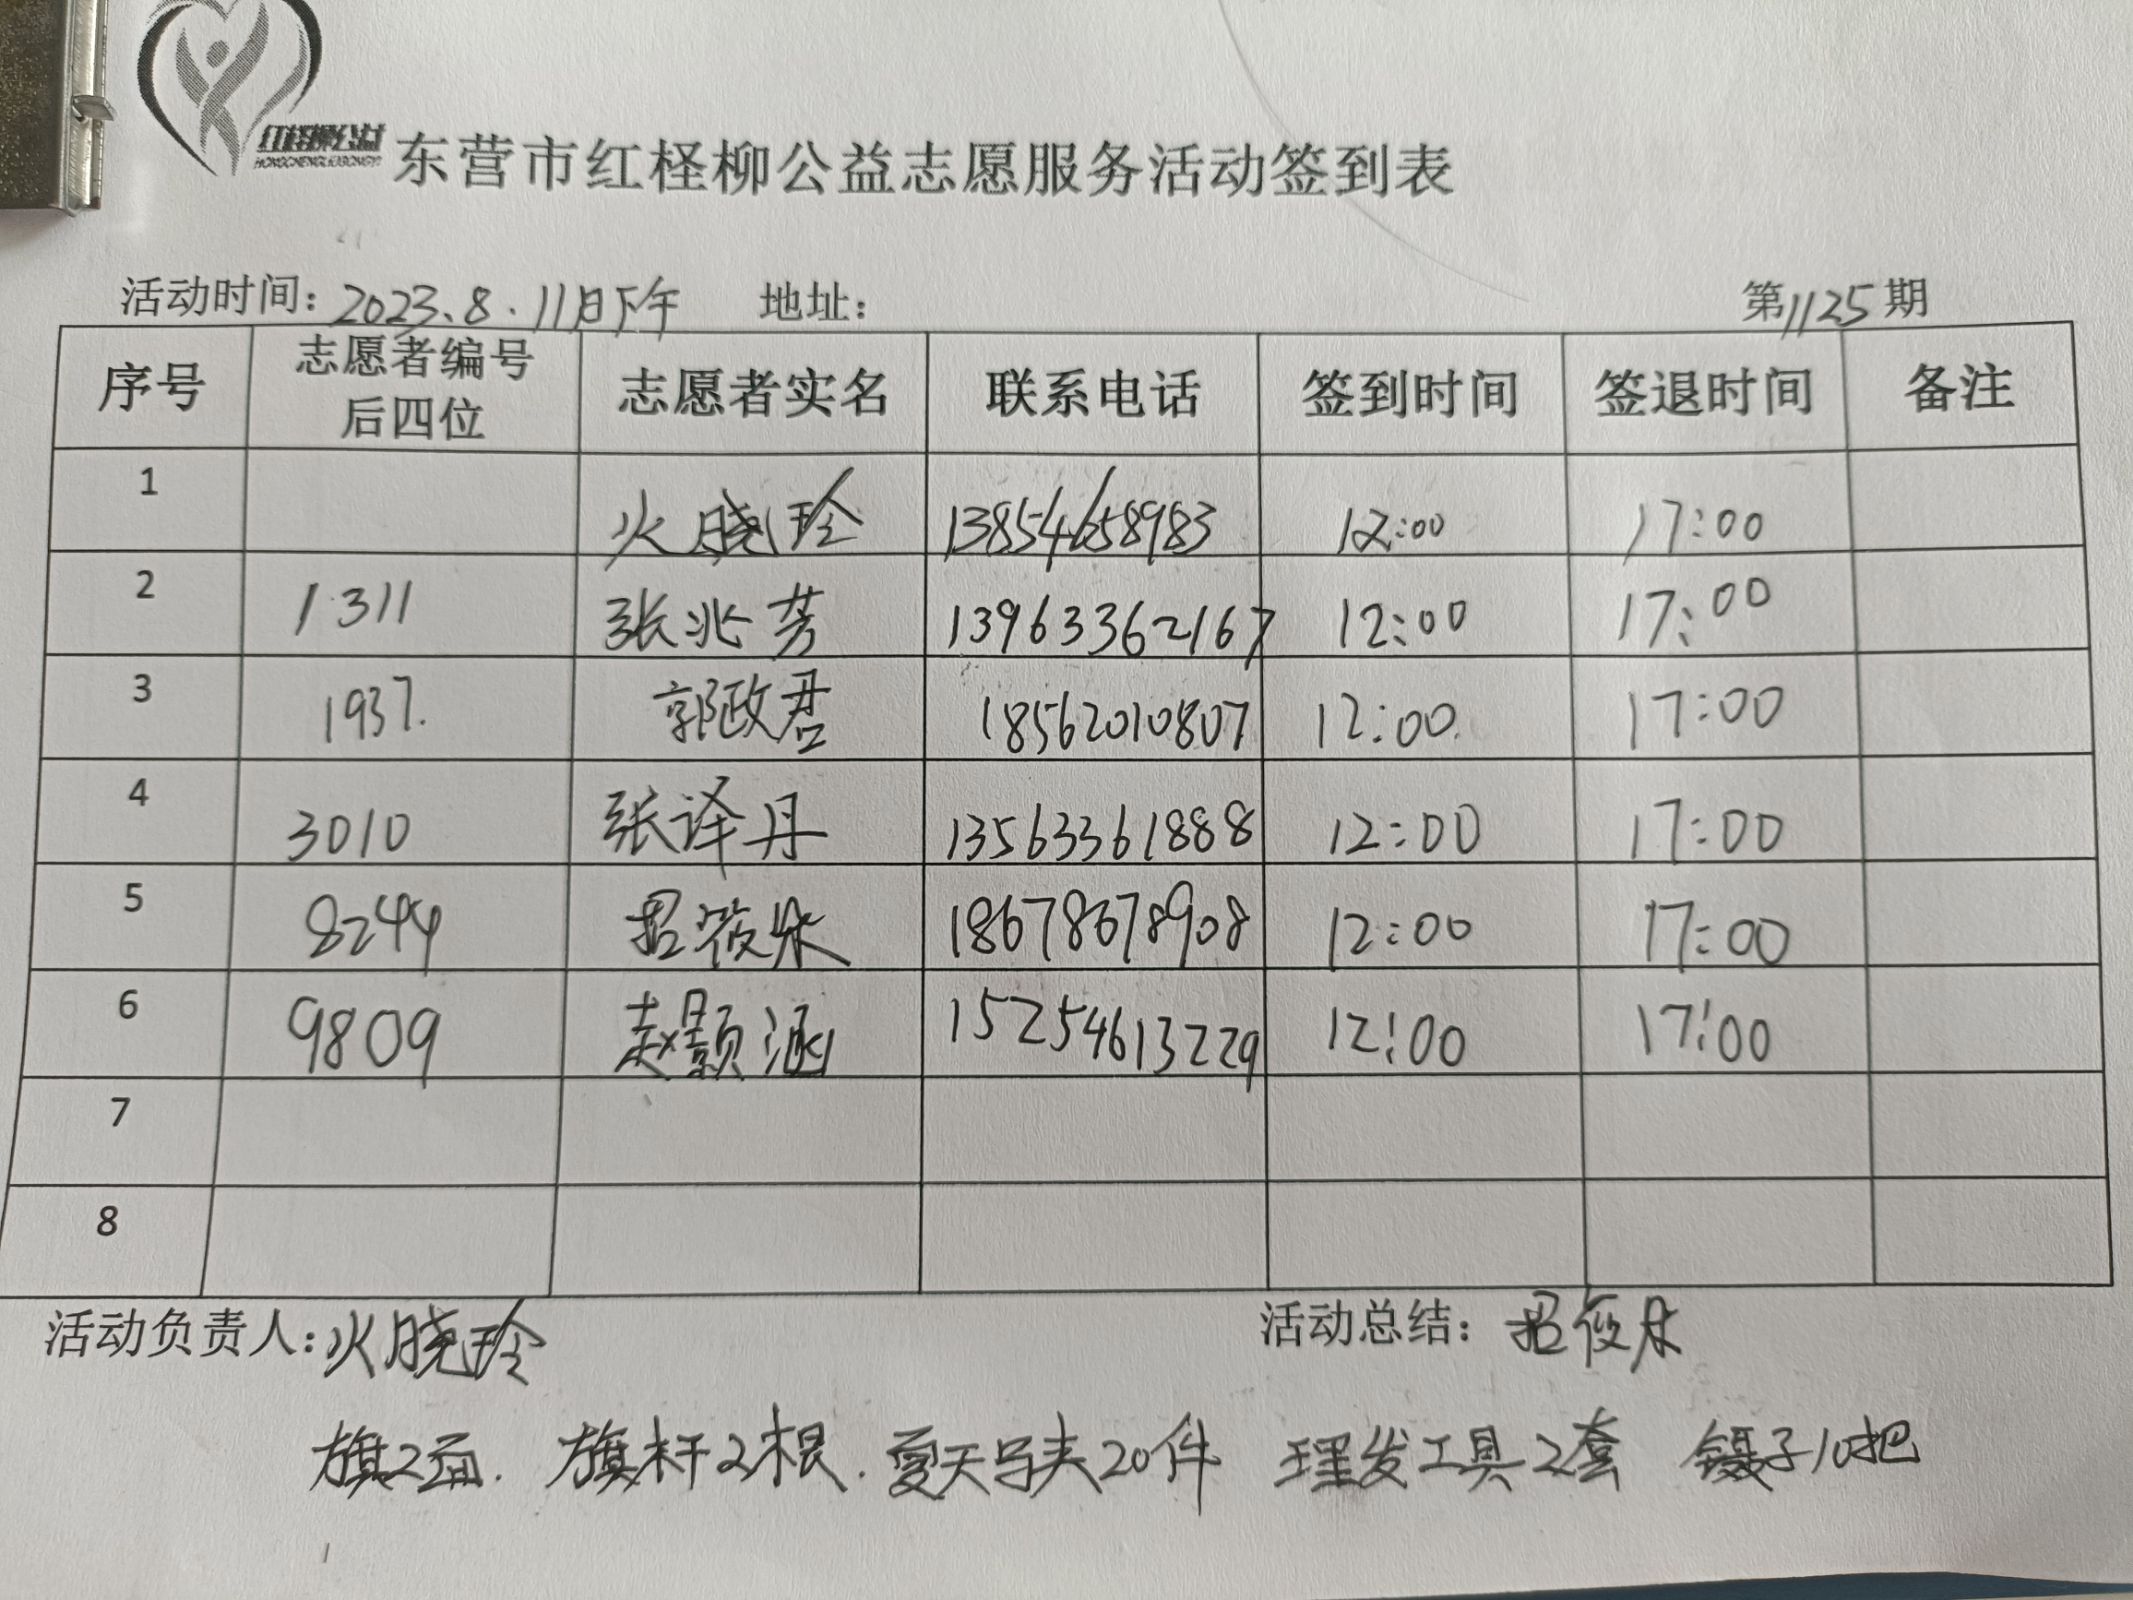 红柽柳公益
HONGCHENGLIUGONGYI
东营市红柽柳公益志愿服务活动签到表
活动时间：2023.8.11日下午 地址： 第1125期
序号 志愿者编号后四位 志愿者实名 联系电话 签到时间 签退时间 备注
1 火晓玲 13854658983 12:00 17:00
2 1311 张兆芳 13963362167 12:00 17:00
3 1937. 郭政君 18562010807 12:00 17:00
4 3010 张译丹 13563361888 12:00 17:00
5 8244 18678678908 12:00 17:00
6 9809 赵颢涵 15254613229 12:00 17:00
7
8
活动负责人：火晓玲 活动总结：
旗2面. 旗杆2根. 夏天马夹20件 理发工具2套 镊子10把